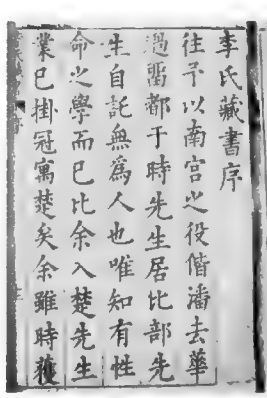 李氏藏書序
往予以南宮之役偕潘去華
過畱都于時先生居比部先
生自託無爲人也唯知有性
命之學而已比余入楚先生
業已掛冠寓楚矣余雖時獲